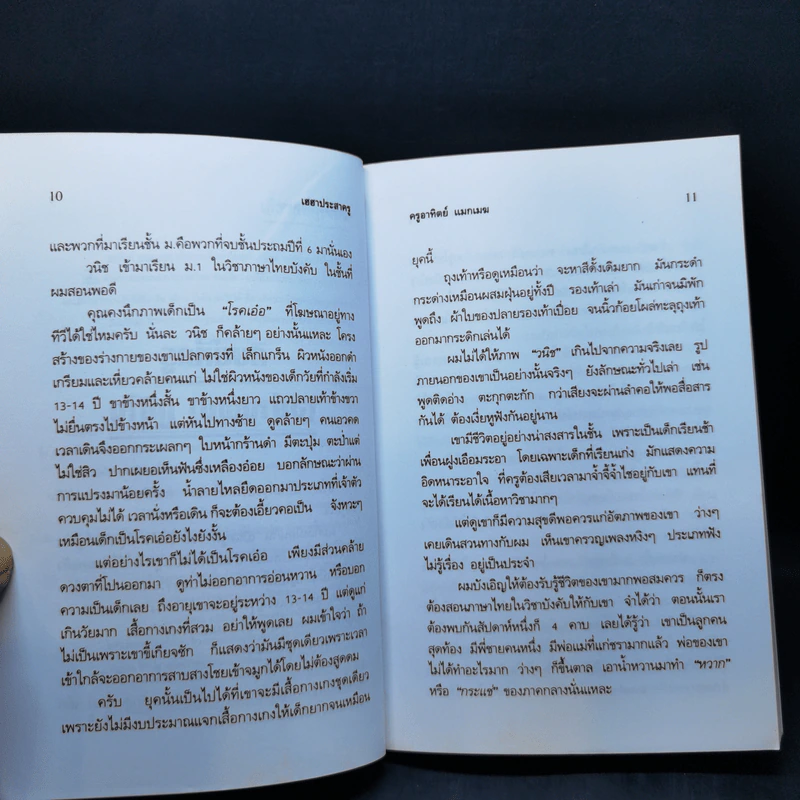 10
เฮฮาประสาครู
และพวกที่มาเรียนชั้น ม.คือพวกที่จบชั้นประถมปีที่ 6 มานั่นเอง
วนิช เข้ามาเรียน ม.1 ในวิชาภาษาไทยบังคับ ในชั้นที่
ผมสอนพอดี
คุณคงนึกภาพเด็กเป็น "โรคเอ๋อ" ที่โฆษณาอยู่ทาง
ทีวีได้ใช่ไหมครับ นั่นละ วนิช ก็คล้ายๆ อย่างนั้นแหละ โครง
สร้างของร่างกายของเขาแปลกตรงที่ เล็กแกร็น ผิวหนังออกดำ
เกรียมและเหี่ยวคล้ายคนแก่ ไม่ใช่ผิวหนังของเด็กวัยที่กำลังเริ่ม
13-14 ปี ขาข้างหนึ่งสั้น ขาข้างหนึ่งยาว แถวปลายเท้าข้างขวา
ไม่ยื่นตรงไปข้างหน้า แต่หันไปทางซ้าย ดูคล้ายๆ คนเอวคด
เวลาเดินจึงออกกระเผลกๆ ใบหน้ากร้านดำ มีตะปุ่ม ตะป่ำแต่
ไม่ใช่สิว ปากเผยอเห็นฟันซี่งเหลืองอ๋อย บอกลักษณะว่าผ่าน
การแปรงมาน้อยครั้ง น้ำลายไหลยืดออกมาประเภทที่เจ้าตัว
ควบคุมไม่ได้ เวลานั่งหรือเดิน ก็จะต้องเอี้ยวคอเป็น จังหวะๆ
เหมือนเด็กเป็นโรคเอ๋อยังไงยังงั้น
แต่อย่างไรเขาก็ไม่ได้เป็นโรคเอ๋อ เพียงมีส่วนคล้าย
ดวงตาที่โปนออกมา ดูท่าไม่ออกอาการอ่อนหวาน หรือบอก
ความเป็นเด็กเลย ถึงอายุเขาจะอยู่ระหว่าง 13-14 ปี แต่ดูแก่
เกินวัยมาก เสื้อกางเกงที่สวม อย่าให้พูดเลย ผมเข้าใจว่า ถ้า
ไม่เป็นเพราะเขาขี้เกียจซัก ก็แสดงว่ามันมีชุดเดียวเพราะเวลา
เข้าใกล้จะออกอาการสาบสางโชยเข้าจมูกได้โดยไม่ต้องสูดดม
ครับ ยุคนั้นเป็นไปได้ที่เขาจะมีเสื้อกางเกงชุดเดียว
เพราะยังไม่มีงบประมาณแจกเสื้อกางเกงให้เด็กยากจนเหมือน
ครูอาทิตย์ แมกเมฆ
11
ยุคนี้
ถุงเท้าหรือดูเหมือนว่า จะหาสีดั้งเดิมยาก มันกระดำ
กระด่างเหมือนผสมฝุ่นอยู่ทั้งปี รองเท้าเล่า มันเก่าจนมิพัก
พูดถึง ผ้าใบของปลายรองเท้าเปื่อย จนนิ้วก้อยโผล่ทะลุถุงเท้า
ออกมากระดิกเล่นได้
ผมไม่ได้ให้ภาพ "วนิช" เกินไปจากความจริงเลย รูป
ภายนอกของเขาเป็นอย่างนั้นจริงๆ ยังลักษณะทั่วไปเล่า เช่น
พูดติดอ่าง ตะกุกตะกัก กว่าเสียงจะผ่านลำคอให้พอสื่อสาร
กันได้ ต้องเงี่ยหูฟังกันอยู่นาน
เขามีชีวิตอยู่อย่างน่าสงสารในชั้น เพราะเป็นเด็กเรียนช้า
เพื่อนฝูงเอือมระอา โดยเฉพาะเด็กที่เรียนเก่ง มักแสดงความ
อิดหนาระอาใจ ที่ครูต้องเสียเวลามาจ้ำจี้จ้ำไชอยู่กับเขา แทนที่
จะได้เรียนได้เนื้อหาวิชามากๆ
แต่ดูเขาก็มีความสุขดีพอควรแก่อัตภาพของเขา ว่างๆ
เคยเดินสวนทางกับผม เห็นเขาครวญเพลงหงิงๆ ประเภทฟัง
ไม่รู้เรื่อง อยู่เป็นประจำ
ผมบังเอิญให้ต้องรับรู้ชีวิตของเขามากพอสมควร ก็ตรง
ต้องสอนภาษาไทยในวิชาบังคับให้กับเขา จำได้ว่า ตอนนั้นเรา
ต้องพบกันสัปดาห์หนึ่งก็ 4 คาบ เลยได้รู้ว่า เขาเป็นลูกคน
สุดท้อง มีพี่ชายคนหนึ่ง มีพ่อแม่ที่แก่ชรามากแล้ว พ่อของเขา
ไม่ได้ทำอะไรมาก ว่างๆ ก็ขึ้นตาล เอาน้ำหวานมาทำ "หวาก"
หรือ "กระแช่" ของภาคกลางนั่นแหละ